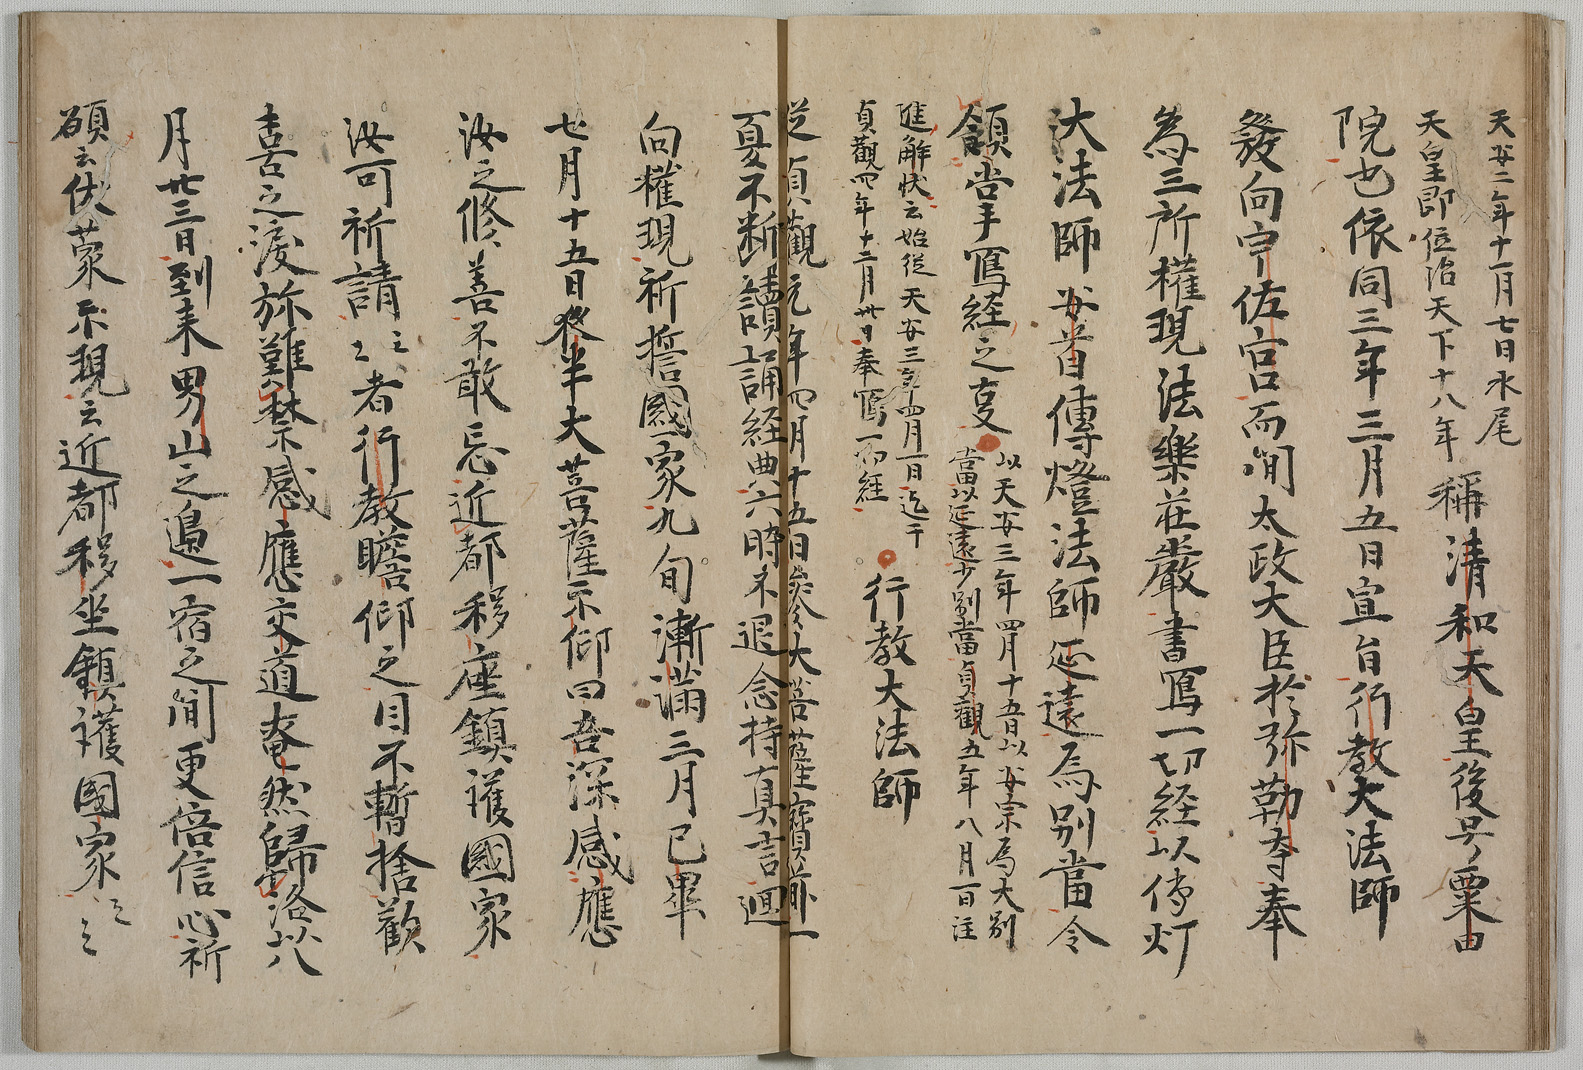 天安二年十一月七日水尾
天皇即位治天下十八年
稱清和天皇後号粟田
院也依同三年三月五日宣旨行教大法師
發向宇佐宮而間太政大臣於弥勒寺奉
為三所權現法樂莊嚴書寫一切経以傳灯
大法師安首傳燈法師延遠為別當令
領掌手寫経之㕝
以天安三年四月十五日以安宗為大別
當以延遠少別當貞觀五年八月一日注
進解状云始従天安三年四月一日迄于
貞觀四年十二月卅日奉寫一切経
行教大法師
従貞觀元年四月十五日參大菩薩寶前一
夏不断讀誦経典六時不退念持真言迴
向權現祈誓國家九旬漸満三月已畢
七月十五日夜半大菩薩示仰曰吾深感應
汝之修善不敢忘近都移座鎮護國家
汝可祈請云々者行教瞻仰之目不暫捨歓
喜之涙弥難禁感應交道奄然歸洛以八
月廿三日到来男山之邊一宿之間更倍信心祈
願云伏蒙示現云近都移坐鎮護國家云々